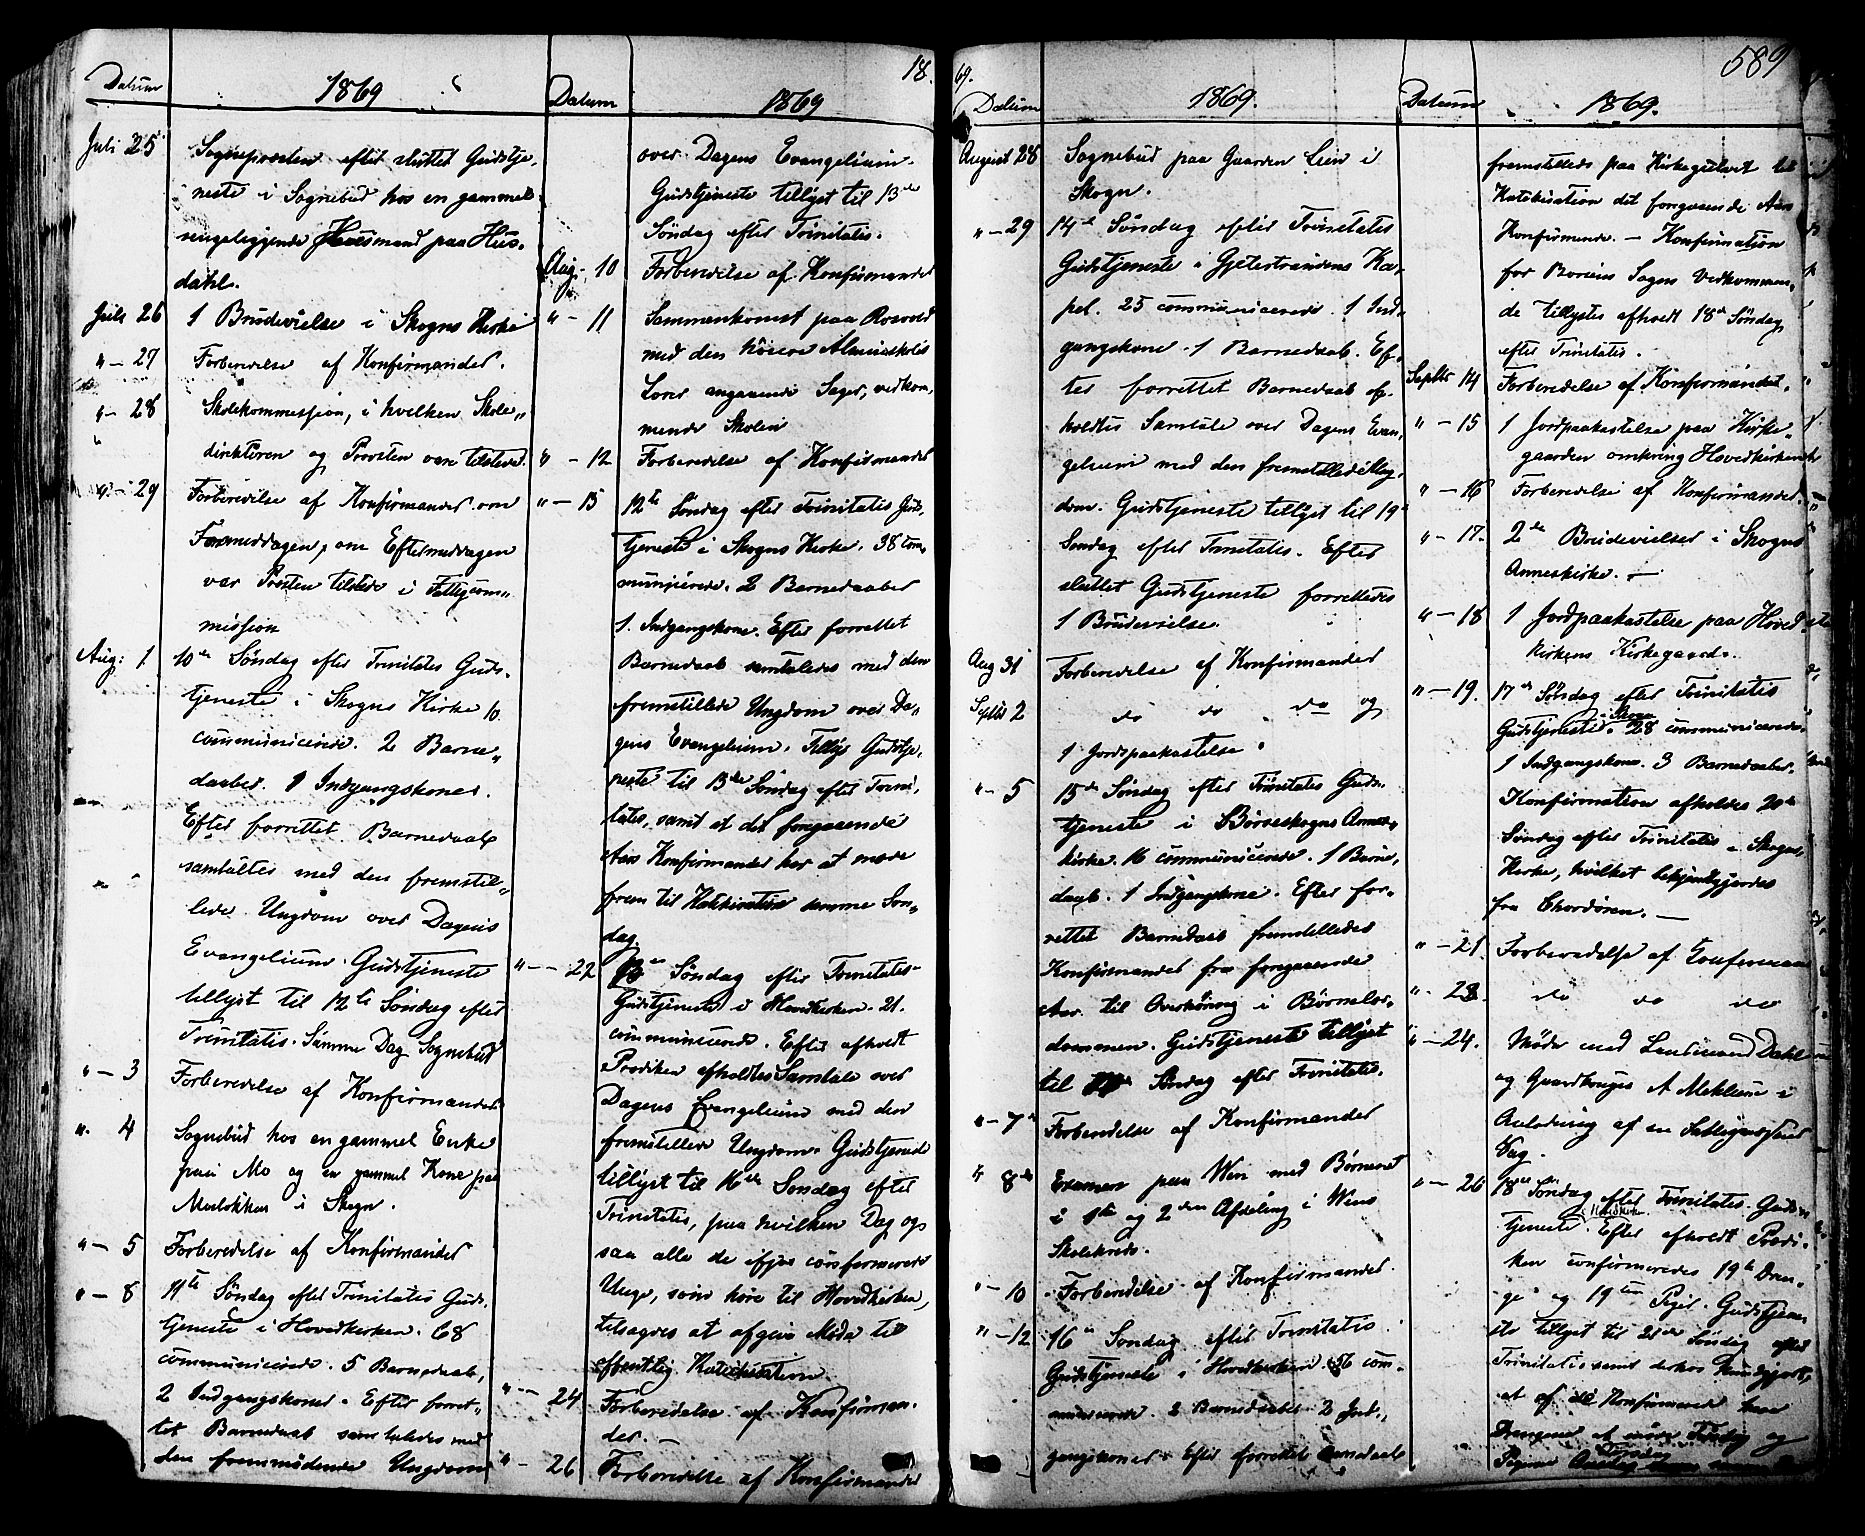 18.
Datum
1869
Juli 25
Sogneprosten efter sluttet Gudstje-
neste i Sognebud hos en gammel
sengeliggende Huusmand paa Hus-
dahl.
Juli 26
1 Brudevielse i Skogns Kirke
" - 27
Forberedelse af Konfirmander.
" - 28
Skolekommission, i hvilken Skole-
direktøren og Provsten vare tilstede.
" - 29
Forberedelse af Konfirmander om
Formiddagen, om Eftermiddagen
var Provsten tilstede i Fattigcom-
mission
Aug: 1.
10de Søndag efter Trinitatis Guds-
tjeneste i Skogns Kirke 10
communicerede. 2 Barne-
daaber. 1 Indgangskoner.
Efter forrettet Barnedaab
samtaltes med den fremstil-
lede Ungdom over Dagens
Evangelium. Gudstjeneste
tillyst til 12te Søndag efter
Trinitatis. Samme Dag Sognebud
" - 3
Forberedelse af Konfirmander
" - 4
Sognebud hos en gammel Enke
paa Mo og en gammel Kone paa
i Skogn.
" - 5
Forberedelse af Konfirmander
" - 8
11te Søndag efter Trinitatis Guds-
tjeneste i Hovedkirken. 68
communicerede. 5 Barnedaab,
2 Indgangskoner. Efter forret-
tet Barnedaab samtaledes med
den fremmødende Ungdom
Datum
1869
over Dagens Evangelium.
Gudstjeneste tillyst til 13de
Søndag efter Trinitatis.
Aug: 10
Forberedelse af Konfirmander
" - 11
Sammenkomst paa Rosvold
med den høiere Almueskoles
Lærer angaaende Sager, vedkom-
mende Skolen
" - 12
Forberedelse af Konfirmander
" - 15
12te Søndag efter Trinitatis Guds-
tjeneste i Skogns Kirke. 38 com-
municerede. 2 Barnedaaber
1 Indgangskone. Efter forrettet
Barnedaab samtaledes med den
fremstillede Ungdom over Da-
gens Evangelium. Tillyst Gudstje-
neste til 13de Søndag efter Trini-
tatis, samt at det foregaaende
Aars Konfirmander har at møde
frem til Katekisation samme Søn-
dag.
" - 22
13de Søndag efter Trinitatis
Gudstjeneste i Hovedkirken. 21
communicerede. Efter afholdt
Prædiken afholdtes Samtale over
Dagens Evangelium med den
fremstillede Ungdom. Gudstjeneste
tillyst til 16de Søndag efter
Trinitatis, paa hvilken Dag og-
saa alle de ifjor confirmerede
Unge, som høre til Hovedkirken,
tilsagdes at afgive Møde til
offentlig Katekisation.
" - 24
Forberedelse af Konfirman-
der. -
" - 26
Forberedelse af Konfirmander
69.
Datum
1869.
August 28
Sognebud paa Gaarden Lein i
Skogn.
" - 29
14de Søndag efter Trinitatis
Gudstjeneste i Gjeterstrandens Ka-
pel. 25 communicerede. 1 Ind-
gangskone. 1 Barnedaab. Ef-
ter forrettet Barnedaab af-
holdtes Samtale over Dagens Evan-
gelium med den fremstillede Ung-
dom. Gudstjeneste tillyst til 19de
Søndag efter Trinitatis. Efter
sluttet Gudstjeneste forrettedes
1 Brudevielse.
Aug 31
Forberedelse af Konfirmander
Septbr 2
do do do og
1 Jordpaakastelse.
" - 5
15de Søndag efter Trinitatis Guds-
tjeneste i Børseskogns Annex-
kirke. 16 communicerede. 1 Barne-
daab. 1 Indgangskone. Efter for-
rettet Barnedaab fremstilledes
Konfirmander fra foregaaende
Aar til Overhøring i Børnelær-
dommen. Gudstjeneste tillyst
til Søndag efter Trinitatis.
" - 7
Forberedelse af Konfirmander
" 8de
Examen paa Win med Børnene
i 1ste og 2den Afdeling i Wins
Skolekreds.
" - 10
Forberedelse af Konfirmander.
" - 12
16de Søndag efter Trinitatis.
Gudstjeneste i Hovedkirken 56 com-
municerede. 2 Barnedaaber 2 Ind-
gangskoner. Efter forrettet Barnedaab
589
Datum
1869.
fremstilledes paa Kirkegulvet til
Katekisation det foregaaende Aars
Konfirmerede. - Konfirmation
for Børsens Sogns Vedkommen-
de tillystes afholdt 18de Søndag
efter Trinitatis.
Septbr 14
Forberedelse af Konfirmander.
" - 15
1 Jordpaakastelse paa Kirke-
gaarden omkring Hovedkirken
" - 16
Forberedelse af Konfirmander.
" - 17.
2de Brudevielser i Skogns
Annexkirke. -
" - 18
1 Jordpaakastelse paa Hoved-
kirkens Kirkegaard.
" - 19.
17de Søndag efter Trinitatis
Gudstjeneste i Skogn 28 communicerede.
1 Indgangskone. 3 Barnedaaber.
Konfirmation afholdes 20de
Søndag efter Trinitatis i Skogns
Kirke, hvilket bekjendtgjordes
fra Chordøren. -
" - 21.
Forberedelse af Confirmander
" - 23.
do do do
" - 24.
Møde med Lensmand Dahl
og Gaardbruger A Meklum i
Anledning af en Fattigvæsenet
Sag.
" - 26
18de Søndag efter Trinitatis. Guds-
tjeneste i Hovedkirke. Efter afholdt Prædi-
ken confirmeredes 19de Dren-
ge og 19ten Piger. Gudstjene-
ste tillyst til 21de Søndag efter
Trinitatis samt derhos kundgjort,
at af de Konfirmerede have
Drengene at møde Tirsdag og
Pigerne Torsdag